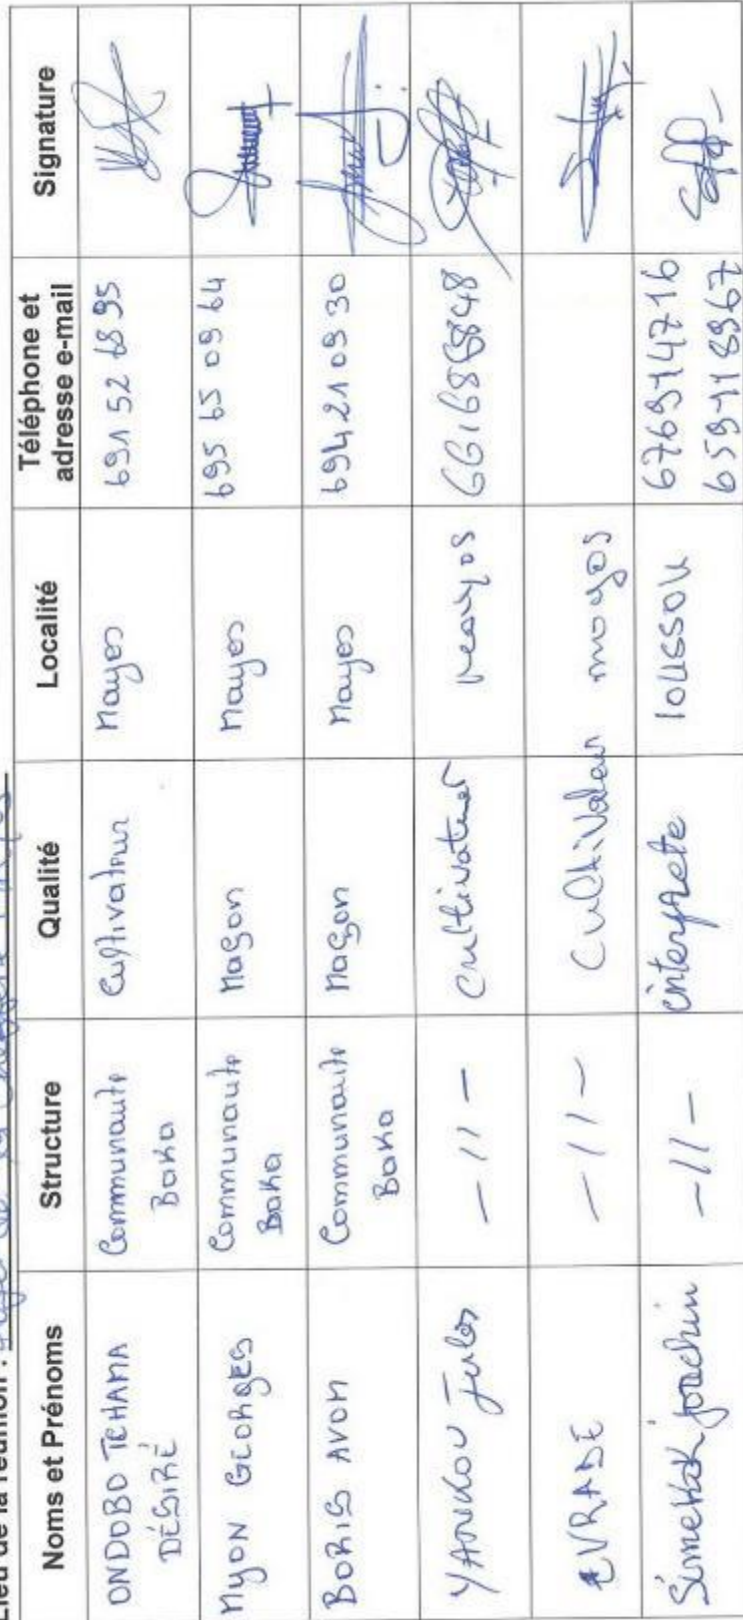 Lieu de la réunion :
Noms et Prénoms Structure Qualité Localité Téléphone et adresse e-mail Signature
ONDOBO TCHAMA DÉSIRÉ Communauté Baka Cultivateur Mayos 691 52 68 95
MYON GEORGES Communauté Baka Maçon Mayos 695 65 09 64
BORIS AVOM Communauté Baka Maçon Mayos 694 21 09 30
YANKOU Jules -11- Cultivateur mayos
EVRADE -11- Cultivateur mayos
Simekoh joachin -11- interprete 676914716